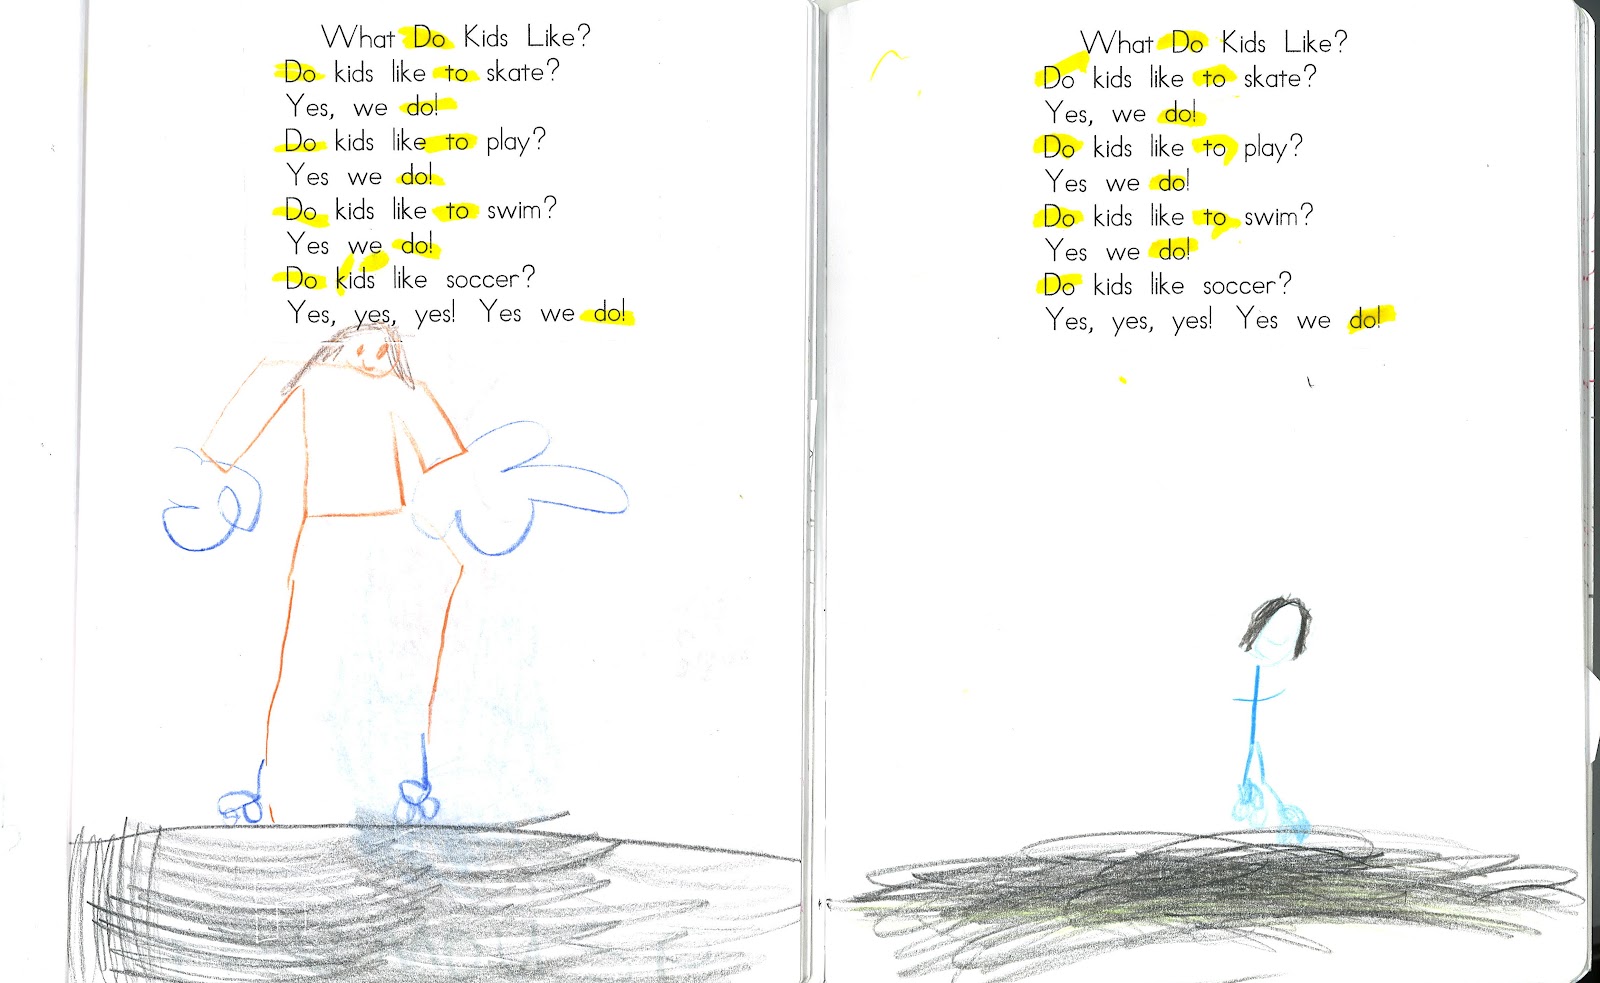 What Do Kids Like?
Do kids like to skate?
Yes, we do!
Do kids like to play?
Yes we do!
Do kids like to swim?
Yes we do!
Do kids like soccer?
Yes, yes, yes! Yes we do!
What Do Kids Like?
Do kids like to skate?
Yes, we do!
Do kids like to play?
Yes we do!
Do kids like to swim?
Yes we do!
Do kids like soccer?
Yes, yes, yes! Yes we do!